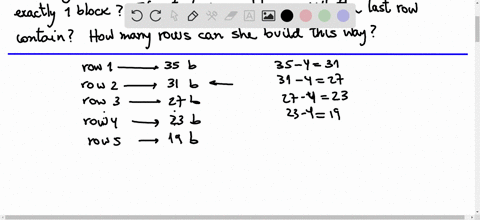 exactly 1 block? last row
contain? How many rows can she build this way?
row 1 → 35 b
row 2 → 31 b ←
row 3 → 27 b
row 4 → 23 b
row 5 → 19 b
35-4=31
31-4=27
27-4=23
23-4=19